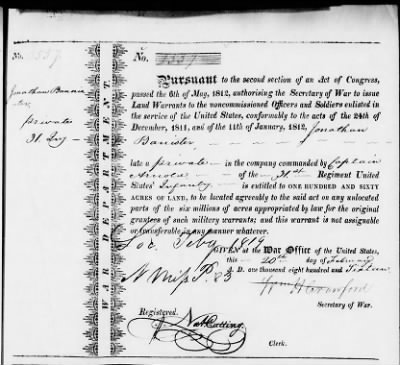 No. 1557
Jonathan Bannis-
ter,
private
31. Inf
WAR DEPARTMENT.
No. 1557
Pursuant to the second section of an Act of Congress,
passed the 6th of May, 1812, authorising the Secretary of War to issue
Land Warrants to the noncommissioned Officers and Soldiers enlisted in
the service of the United States, conformably to the acts of the 24th of
December, 1811, and of the 11th of January, 1812, Jonathan
Bannister
late a private in the company commanded by Captain
of the 31st Regiment United
States' Infantry is entitled to ONE HUNDRED AND SIXTY
ACRES OF LAND, to be located agreeably to the said act on any unlocated
parts of the six millions of acres appropriated by law for the original
grantees of such military warrants; and this warrant is not assignable
or transferable in any manner whatever.
Loc. Feby 1819
GIVEN at the War Office of the United States,
this 20th day of February
A. D. one thousand eight hundred and Sixteen
P. 23
Wm H Crawford
Secretary of War.
Registered.
Nat Cutting.
Clerk.